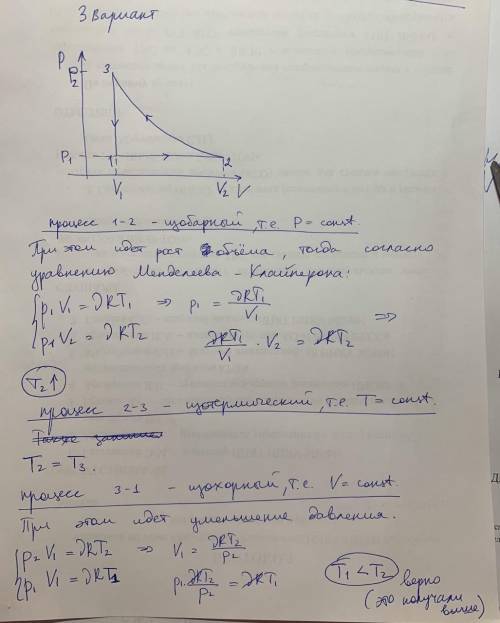 3 Вариант
P
P2
3
P1
1
2
V1
V2
V
процесс 1-2 - изобарный, т.е. P = const.
При этом идет рост объёма, тогда согласно
уравнению Менделеева - Клайперона:
p1 V1 = νRT1 ⇒ p1 = νRT1 / V1 ⇒
p1 V2 = νRT2 νRT1 / V1 · V2 = νRT2
T2↑
процесс 2-3 - изотермический, т.е. T = const.
T2 = T3.
процесс 3-1 - изохорный, т.е. V = const.
При этом идет уменьшение давления.
p2 V1 = νRT2 ⇒ V1 = νRT2 / p2
p1 V1 = νRT1 p1 · νRT2 / p2 = νRT1
T1 < T2 верно
(это получали
выше)